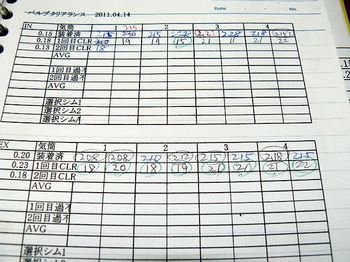 Date
No.
バルブクリアランス 2011.04.14
IN 気筒 1 2 3 4
0.15 装着済 215 230 215 222 228 218
0.18 1回目CLR 20 19 19 15 21 11 21 22
0.13 2回目CLR 18
AVG
1回目過不
2回目過不
選択シム1
選択シム2
選択シム
EX 気筒 1 2 3 4
0.20 装着済 208 208 210 212 215 215 218 215
0.23 1回目CLR 18 20 18 19 20 20 21 22
0.18 2回目CLR
AVG
1回目過不
2回目過不
AVG
選択シム1